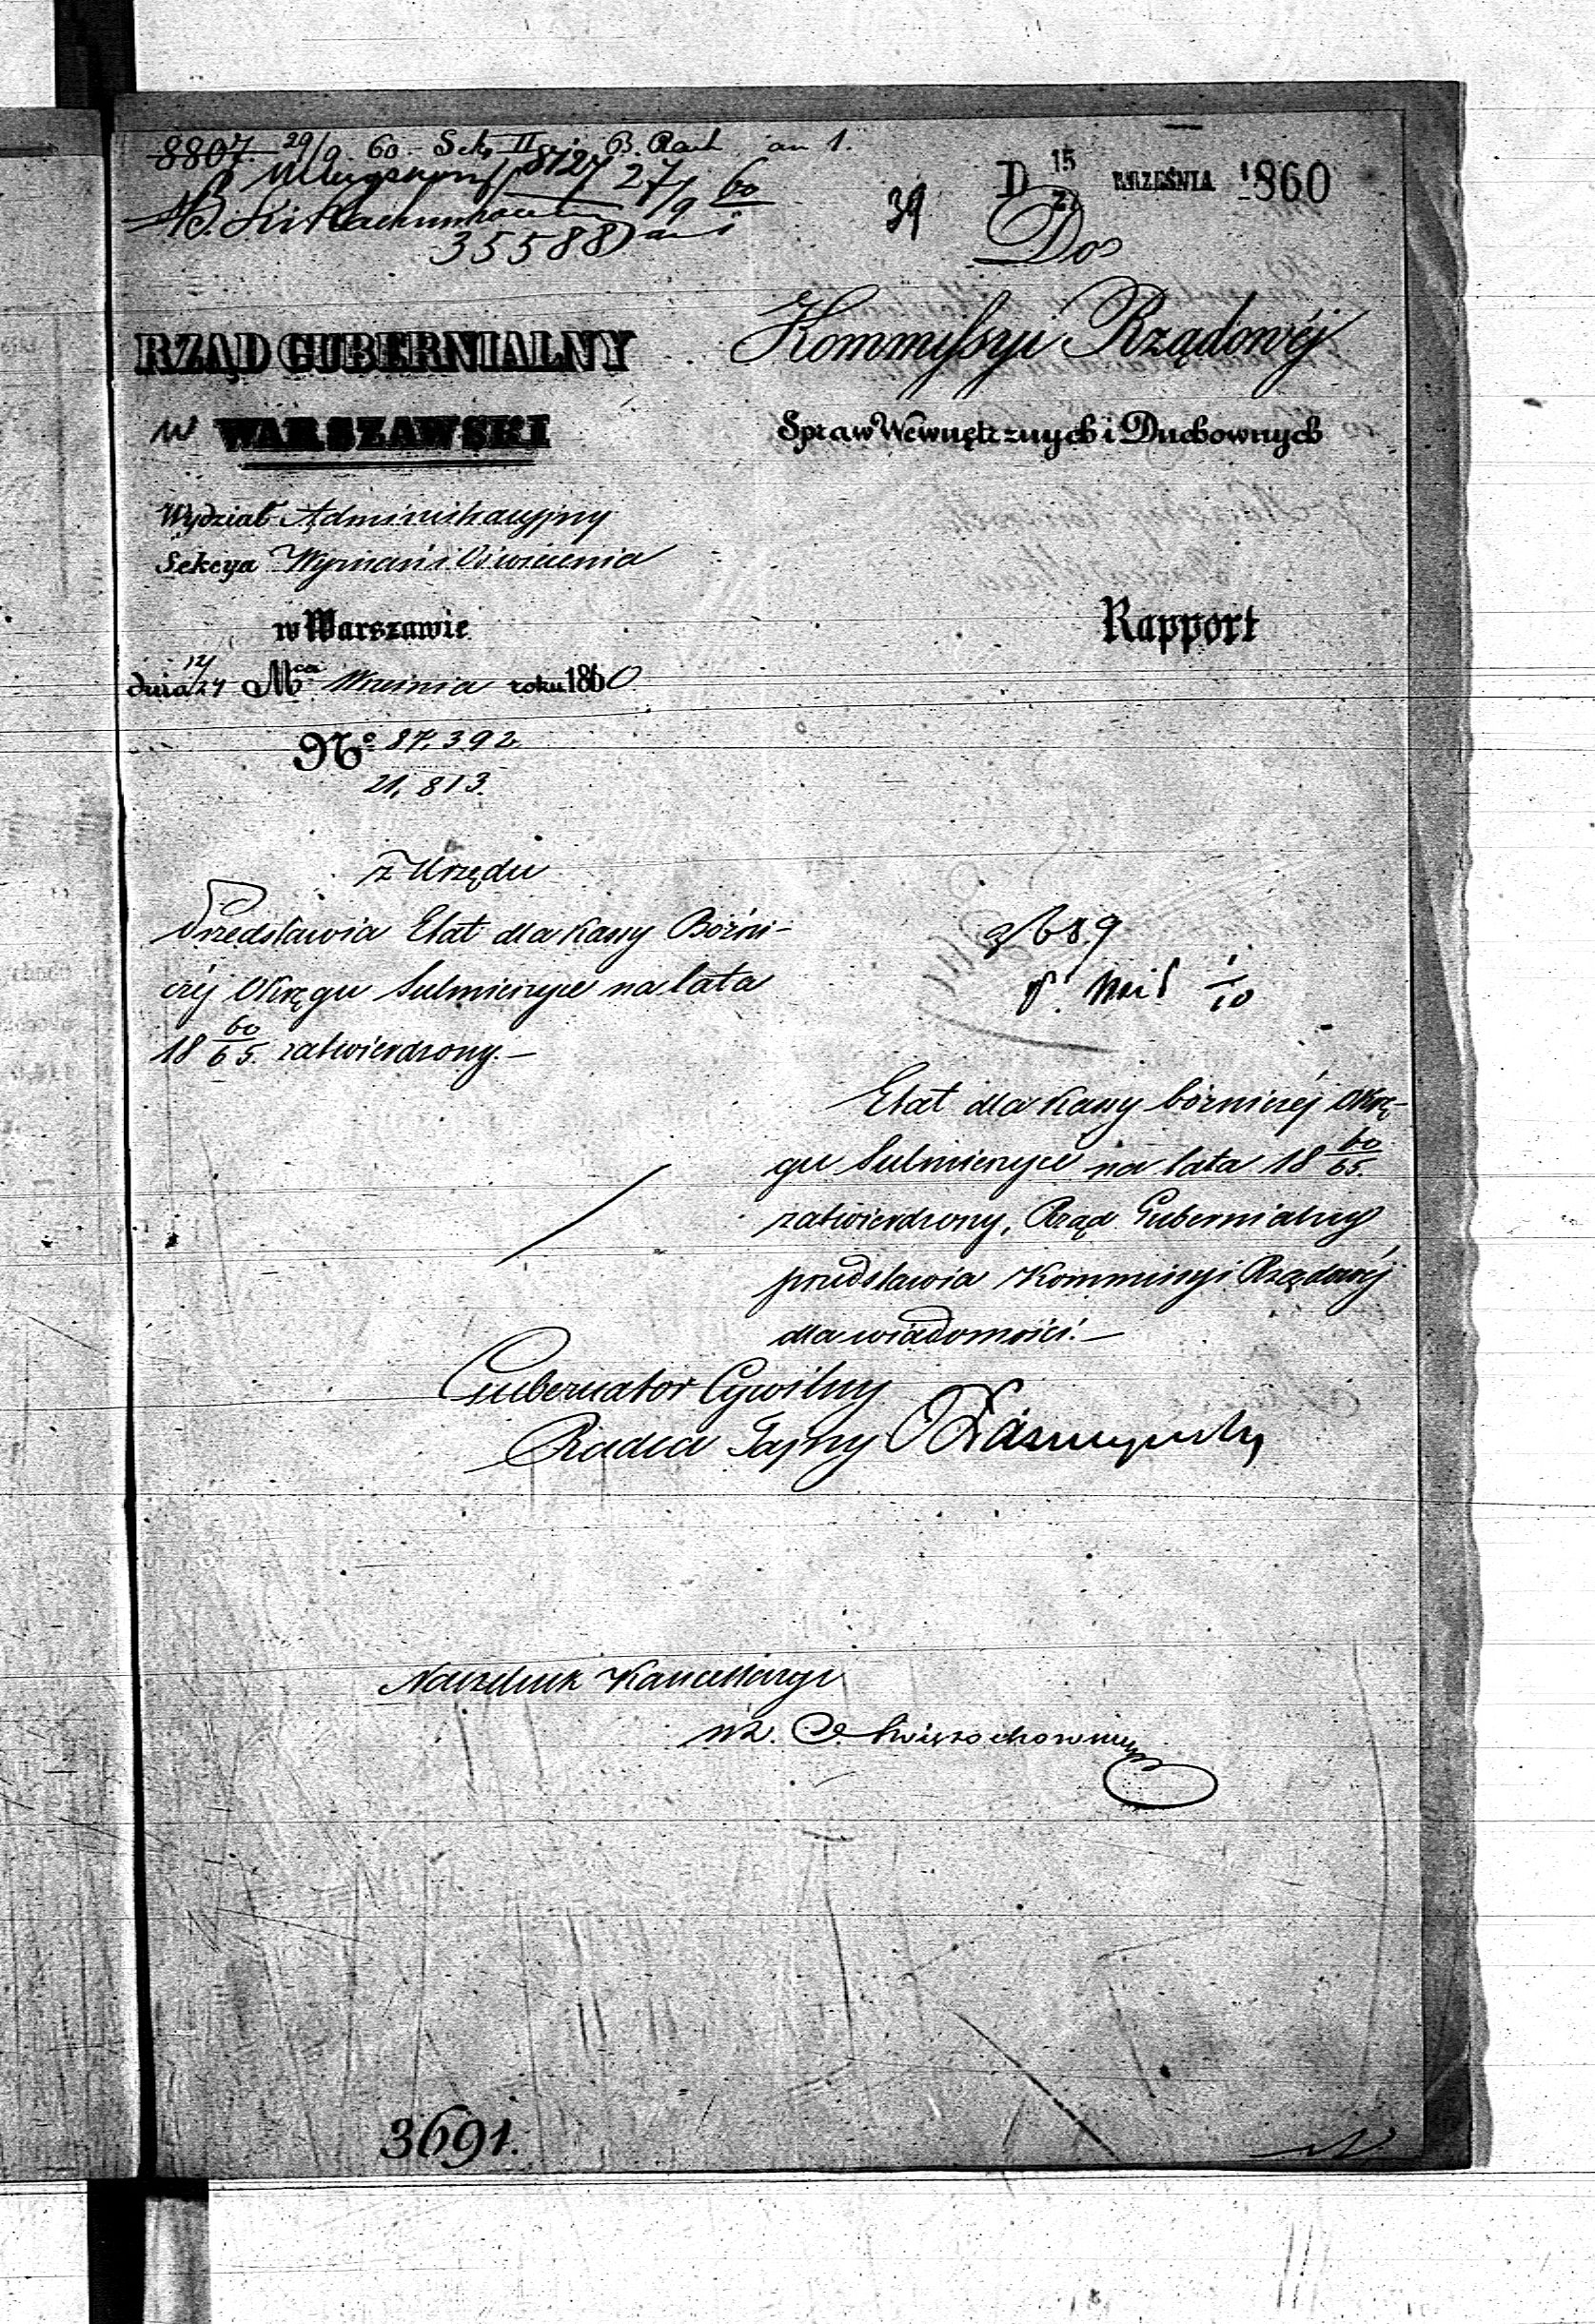 8807. 29/9 60 - Sek. II B. Rach an 1.
8127 27/9 60
35588
D 15/27 WRZEŚNIA 1860
39
Do
RZĄD GUBERNIALNY
WARSZAWSKI
Kommissyi Rządowéj
Spraw Wewnętrznych i Duchownych
Wydział Administracyjny
Sekcya Wyznań i Oświecenia
w Warszawie
dnia 12/24 Mca Września roku 1860
Rapport
No 87,392
21,813.
z Urzędu
Przedstawia Etat dla Kassy Bóżni-
czéj Okręgu Sulmierzyce na lata
18 60/65. zatwierdzony.—
Etat dla Kassy bóżniczéj Okrę-
gu Sulmierzyce na lata 18 60/65.
zatwierdzony, Rząd Gubernialny
przedstawia Kommissyi Rządowéj
dla wiadomości.—
Gubernator Cywilny
Radca Tajny
Naczelnik Kancellaryi
3691.